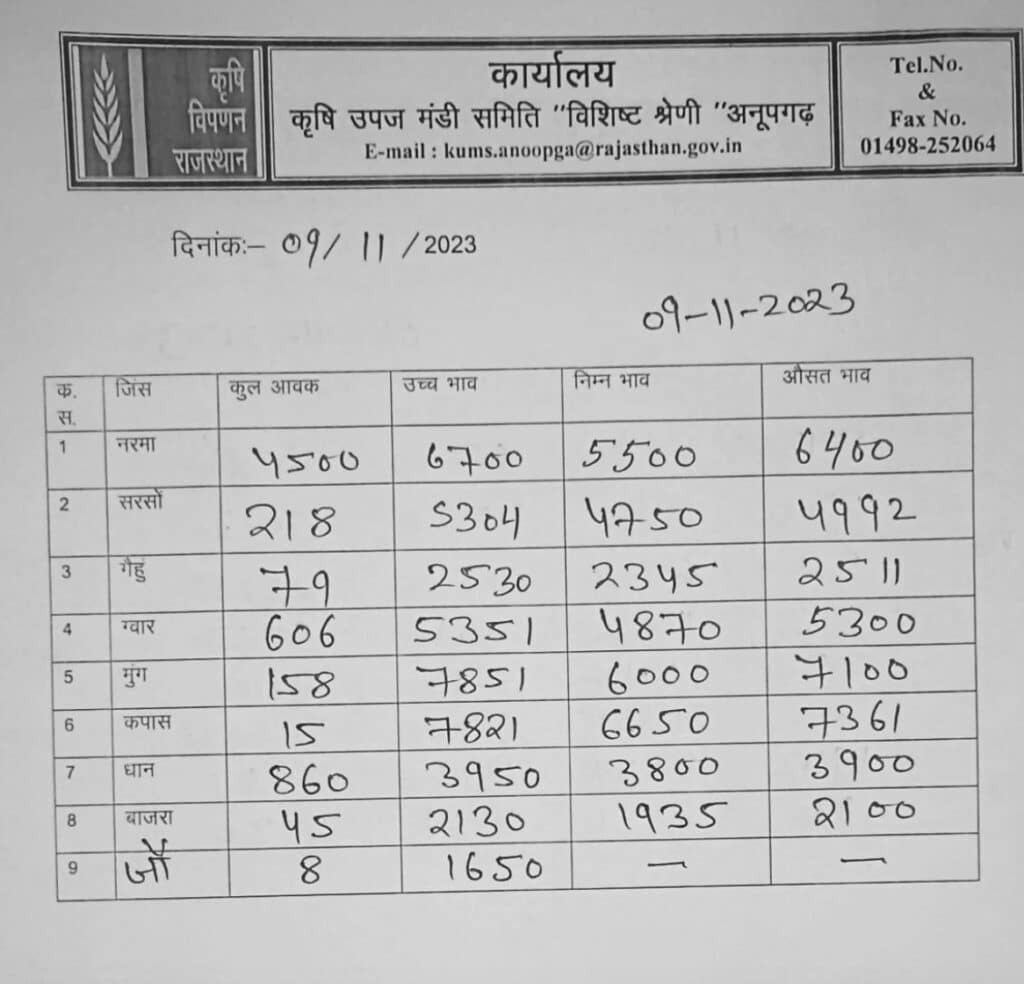 कृषि
विपणन
राजस्थान
कार्यालय
कृषि उपज मंडी समिति "विशिष्ट श्रेणी "अनूपगढ़
E-mail : kums.anoopga@rajasthan.gov.in
Tel.No.
&
Fax No.
01498-252064
दिनांकः– 09/ 11 /2023
09-11-2023
क. स. जिंस कुल आवक उच्च भाव निम्न भाव औसत भाव
1 नरमा 4500 6700 5500 6400
2 सरसों 218 5304 4750 4992
3 गैहुं 79 2530 2345 2511
4 ग्वार 606 5351 4870 5300
5 मुंग 158 7851 6000 7100
6 कपास 15 7821 6650 7361
7 धान 860 3950 3800 3900
8 बाजरा 45 2130 1935 2100
9 जौ 8 1650 — —